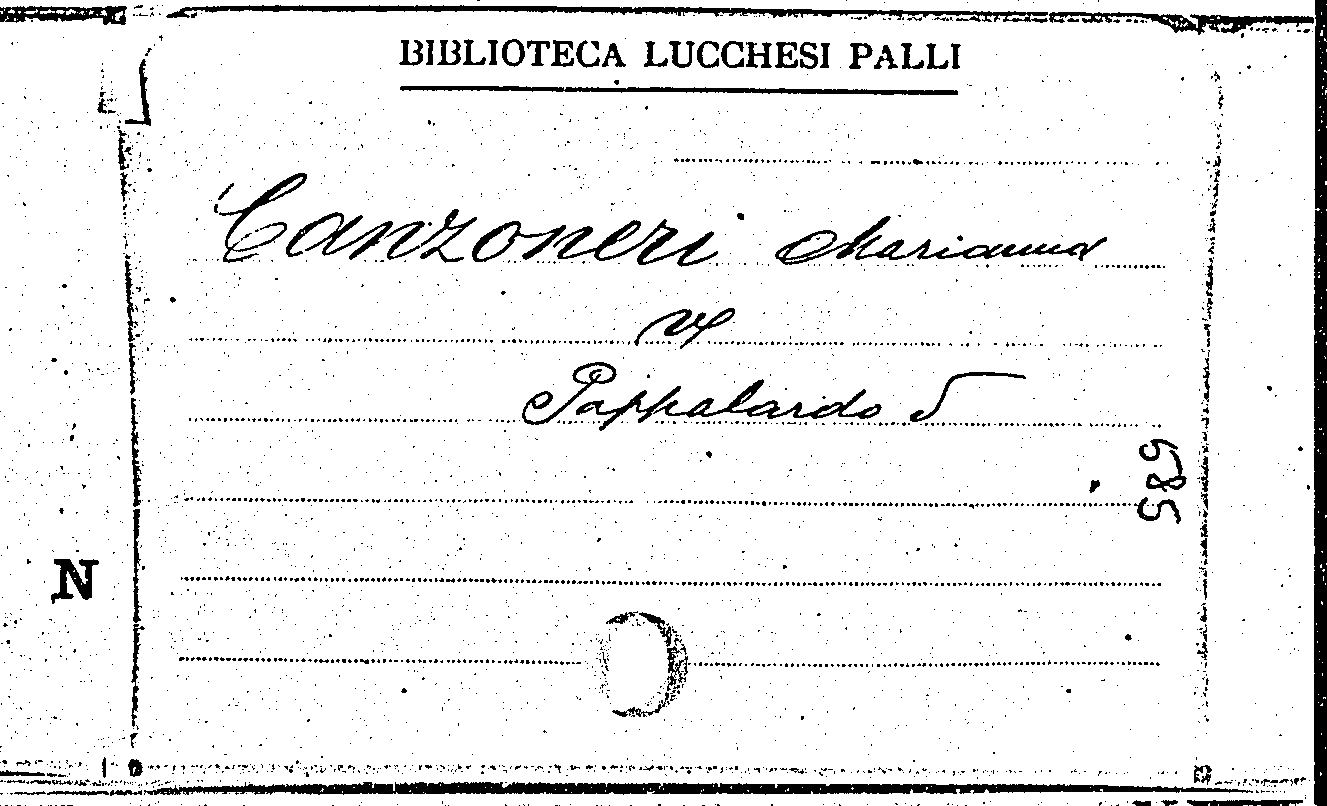 BIBLIOTECA LUCCHESI PALLI
Canzoneri Marianna
Pappalardo S
589
N